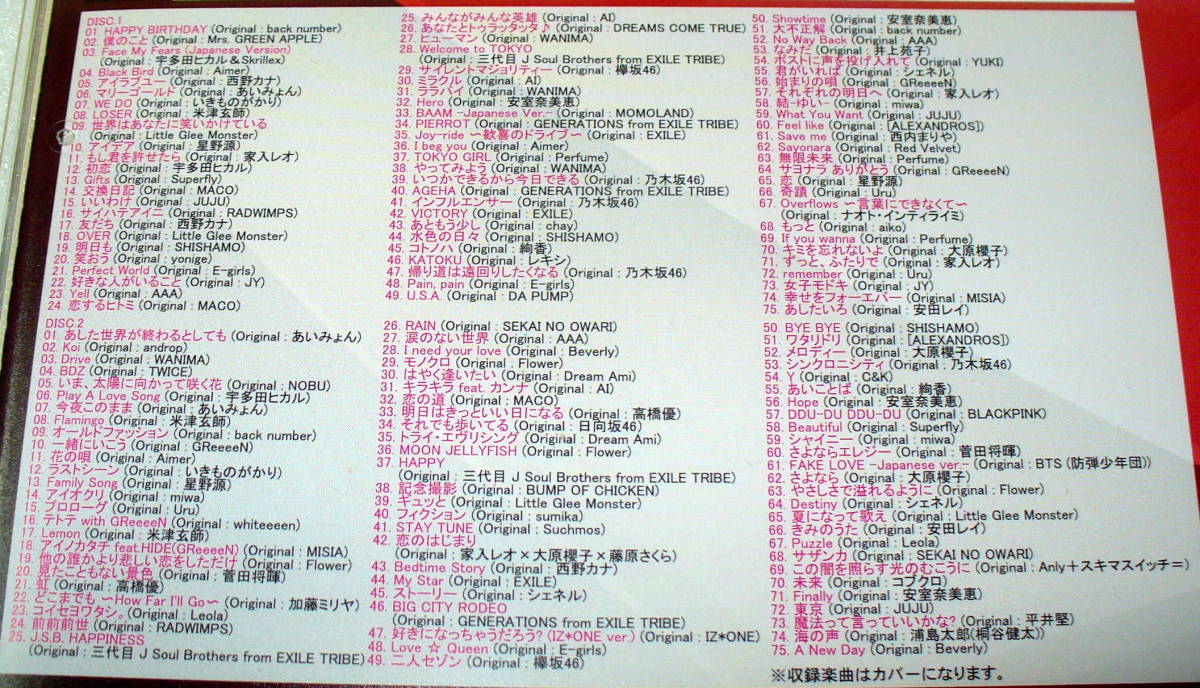 DISC.1
01. HAPPY BIRTHDAY (Original : back number)
02. 僕のこと (Original : Mrs. GREEN APPLE)
03. Face My Fears (Japanese Version)
(Original : 宇多田ヒカル＆Skrillex)
04. Black Bird (Original : Aimer)
05. アイラブユー (Original : 西野カナ)
06. マリーゴールド (Original : あいみょん)
07. WE DO (Original : いきものがかり)
08. LOSER (Original : 米津玄師)
09. 世界はあなたに笑いかけている
(Original : Little Glee Monster)
10. アイデア (Original : 星野源)
11. もし君を許せたら (Original : 家入レオ)
12. 初恋 (Original : 宇多田ヒカル)
13. Gifts (Original : Superfly)
14. 交換日記 (Original : MACO)
15. いいわけ (Original : JUJU)
16. サイハテアイニ (Original : RADWIMPS)
17. 友だち (Original : 西野カナ)
18. OVER (Original : Little Glee Monster)
19. 明日も (Original : SHISHAMO)
20. 笑おう (Original : yonige)
21. Perfect World (Original : E-girls)
22. 好きな人がいること (Original : JY)
23. Yell (Original : AAA)
24. 恋するヒトミ (Original : MACO)
25. みんながみんな英雄 (Original : AI)
26. あなたとトゥラッタッタ♪ (Original : DREAMS COME TRUE)
27. ヒューマン (Original : WANIMA)
28. Welcome to TOKYO
(Original : 三代目 J Soul Brothers from EXILE TRIBE)
29. サイレントマジョリティー (Original : 欅坂46)
30. ミラクル (Original : AI)
31. ララバイ (Original : WANIMA)
32. Hero (Original : 安室奈美恵)
33. BAAM -Japanese Ver.- (Original : MOMOLAND)
34. PIERROT (Original : GENERATIONS from EXILE TRIBE)
35. Joy-ride 〜歓喜のドライブ〜 (Original : EXILE)
36. I beg you (Original : Aimer)
37. TOKYO GIRL (Original : Perfume)
38. やってみよう (Original : WANIMA)
39. いつかできるから今日できる (Original : 乃木坂46)
40. AGEHA (Original : GENERATIONS from EXILE TRIBE)
41. インフルエンサー (Original : 乃木坂46)
42. VICTORY (Original : EXILE)
43. あともう少し (Original : chay)
44. 水色の日々 (Original : SHISHAMO)
45. コトノハ (Original : 絢香)
46. KATOKU (Original : レキシ)
47. 帰り道は遠回りしたくなる (Original : 乃木坂46)
48. Pain, pain (Original : E-girls)
49. U.S.A. (Original : DA PUMP)
50. Showtime (Original : 安室奈美恵)
51. 大不正解 (Original : back number)
52. No Way Back (Original : AAA)
53. なみだ (Original : 井上苑子)
54. ポストに声を投げ入れて (Original : YUKI)
55. 君がいれば (Original : シェネル)
56. 始まりの唄 (Original : GReeeeN)
57. それぞれの明日へ (Original : 家入レオ)
58. 結-ゆい- (Original : miwa)
59. What You Want (Original : JUJU)
60. Feel like (Original : [ALEXANDROS])
61. Save me (Original : 西内まりや)
62. Sayonara (Original : Red Velvet)
63. 無限未来 (Original : Perfume)
64. サヨナラ ありがとう (Original : GReeeeN)
65. 恋 (Original : 星野源)
66. 奇蹟 (Original : Uru)
67. Overflows 〜言葉にできなくて〜
(Original : ナオト・インティライミ)
68. もっと (Original : aiko)
69. If you wanna (Original : Perfume)
70. キミを忘れないよ (Original : 大原櫻子)
71. ずっと、ふたりで (Original : 家入レオ)
72. remember (Original : Uru)
73. 女子モドキ (Original : JY)
74. 幸せをフォーエバー (Original : MISIA)
75. あしたいろ (Original : 安田レイ)
DISC.2
01. あした世界が終わるとしても (Original : あいみょん)
02. Koi (Original : androp)
03. Drive (Original : WANIMA)
04. BDZ (Original : TWICE)
05. いま、太陽に向かって咲く花 (Original : NOBU)
06. Play A Love Song (Original : 宇多田ヒカル)
07. 今夜このまま (Original : あいみょん)
08. Flamingo (Original : 米津玄師)
09. オールドファッション (Original : back number)
10. 一緒にいこう (Original : GReeeeN)
11. 花の唄 (Original : Aimer)
12. ラストシーン (Original : いきものがかり)
13. Family Song (Original : 星野源)
14. アイオクリ (Original : miwa)
15. プロローグ (Original : Uru)
16. テトテ with GReeeeN (Original : whiteeeen)
17. Lemon (Original : 米津玄師)
18. アイノカタチ feat.HIDE(GReeeeN) (Original : MISIA)
19. 他の誰かより悲しい恋をしただけ (Original : Flower)
20. 見たこともない景色 (Original : 菅田将暉)
21. 虹 (Original : 高橋優)
22. どこまでも 〜How Far I'll Go〜 (Original : 加藤ミリヤ)
23. コイセヨワタシ。(Original : Leola)
24. 前前前世 (Original : RADWIMPS)
25. J.S.B. HAPPINESS
(Original : 三代目 J Soul Brothers from EXILE TRIBE)
26. RAIN (Original : SEKAI NO OWARI)
27. 涙のない世界 (Original : AAA)
28. I need your love (Original : Beverly)
29. モノクロ (Original : Flower)
30. はやく逢いたい (Original : Dream Ami)
31. キラキラ feat. カンナ (Original : AI)
32. 恋の道 (Original : MACO)
33. 明日はきっといい日になる (Original : 高橋優)
34. それでも歩いてる (Original : 日向坂46)
35. トライ・エヴリシング (Original : Dream Ami)
36. MOON JELLYFISH (Original : Flower)
37. HAPPY
(Original : 三代目 J Soul Brothers from EXILE TRIBE)
38. 記念撮影 (Original : BUMP OF CHICKEN)
39. ギュッと (Original : Little Glee Monster)
40. フィクション (Original : sumika)
41. STAY TUNE (Original : Suchmos)
42. 恋のはじまり
(Original : 家入レオ×大原櫻子×藤原さくら)
43. Bedtime Story (Original : 西野カナ)
44. My Star (Original : EXILE)
45. ストーリー (Original : シェネル)
46. BIG CITY RODEO
(Original : GENERATIONS from EXILE TRIBE)
47. 好きになっちゃうだろう? (IZ*ONE ver.) (Original : IZ*ONE)
48. Love ☆ Queen (Original : E-girls)
49. 二人セゾン (Original : 欅坂46)
50. BYE BYE (Original : SHISHAMO)
51. ワタリドリ (Original : [ALEXANDROS])
52. メロディー (Original : 大原櫻子)
53. シンクロニシティ (Original : 乃木坂46)
54. Y (Original : C&K)
55. あいことば (Original : 絢香)
56. Hope (Original : 安室奈美恵)
57. DDU-DU DDU-DU (Original : BLACKPINK)
58. Beautiful (Original : Superfly)
59. シャイニー (Original : miwa)
60. さよならエレジー (Original : 菅田将暉)
61. FAKE LOVE -Japanese ver.- (Original : BTS (防弾少年団))
62. さよなら (Original : 大原櫻子)
63. やさしさで溢れるように (Original : Flower)
64. Destiny (Original : シェネル)
65. 夏になって歌え (Original : Little Glee Monster)
66. きみのうた (Original : 安田レイ)
67. Puzzle (Original : Leola)
68. サザンカ (Original : SEKAI NO OWARI)
69. この闇を照らす光のむこうに (Original : Anly＋スキマスイッチ＝)
70. 未来 (Original : コブクロ)
71. Finally (Original : 安室奈美恵)
72. 東京 (Original : JUJU)
73. 魔法って言っていいかな? (Original : 平井堅)
74. 海の声 (Original : 浦島太郎(桐谷健太))
75. A New Day (Original : Beverly)
※収録楽曲はカバーになります。